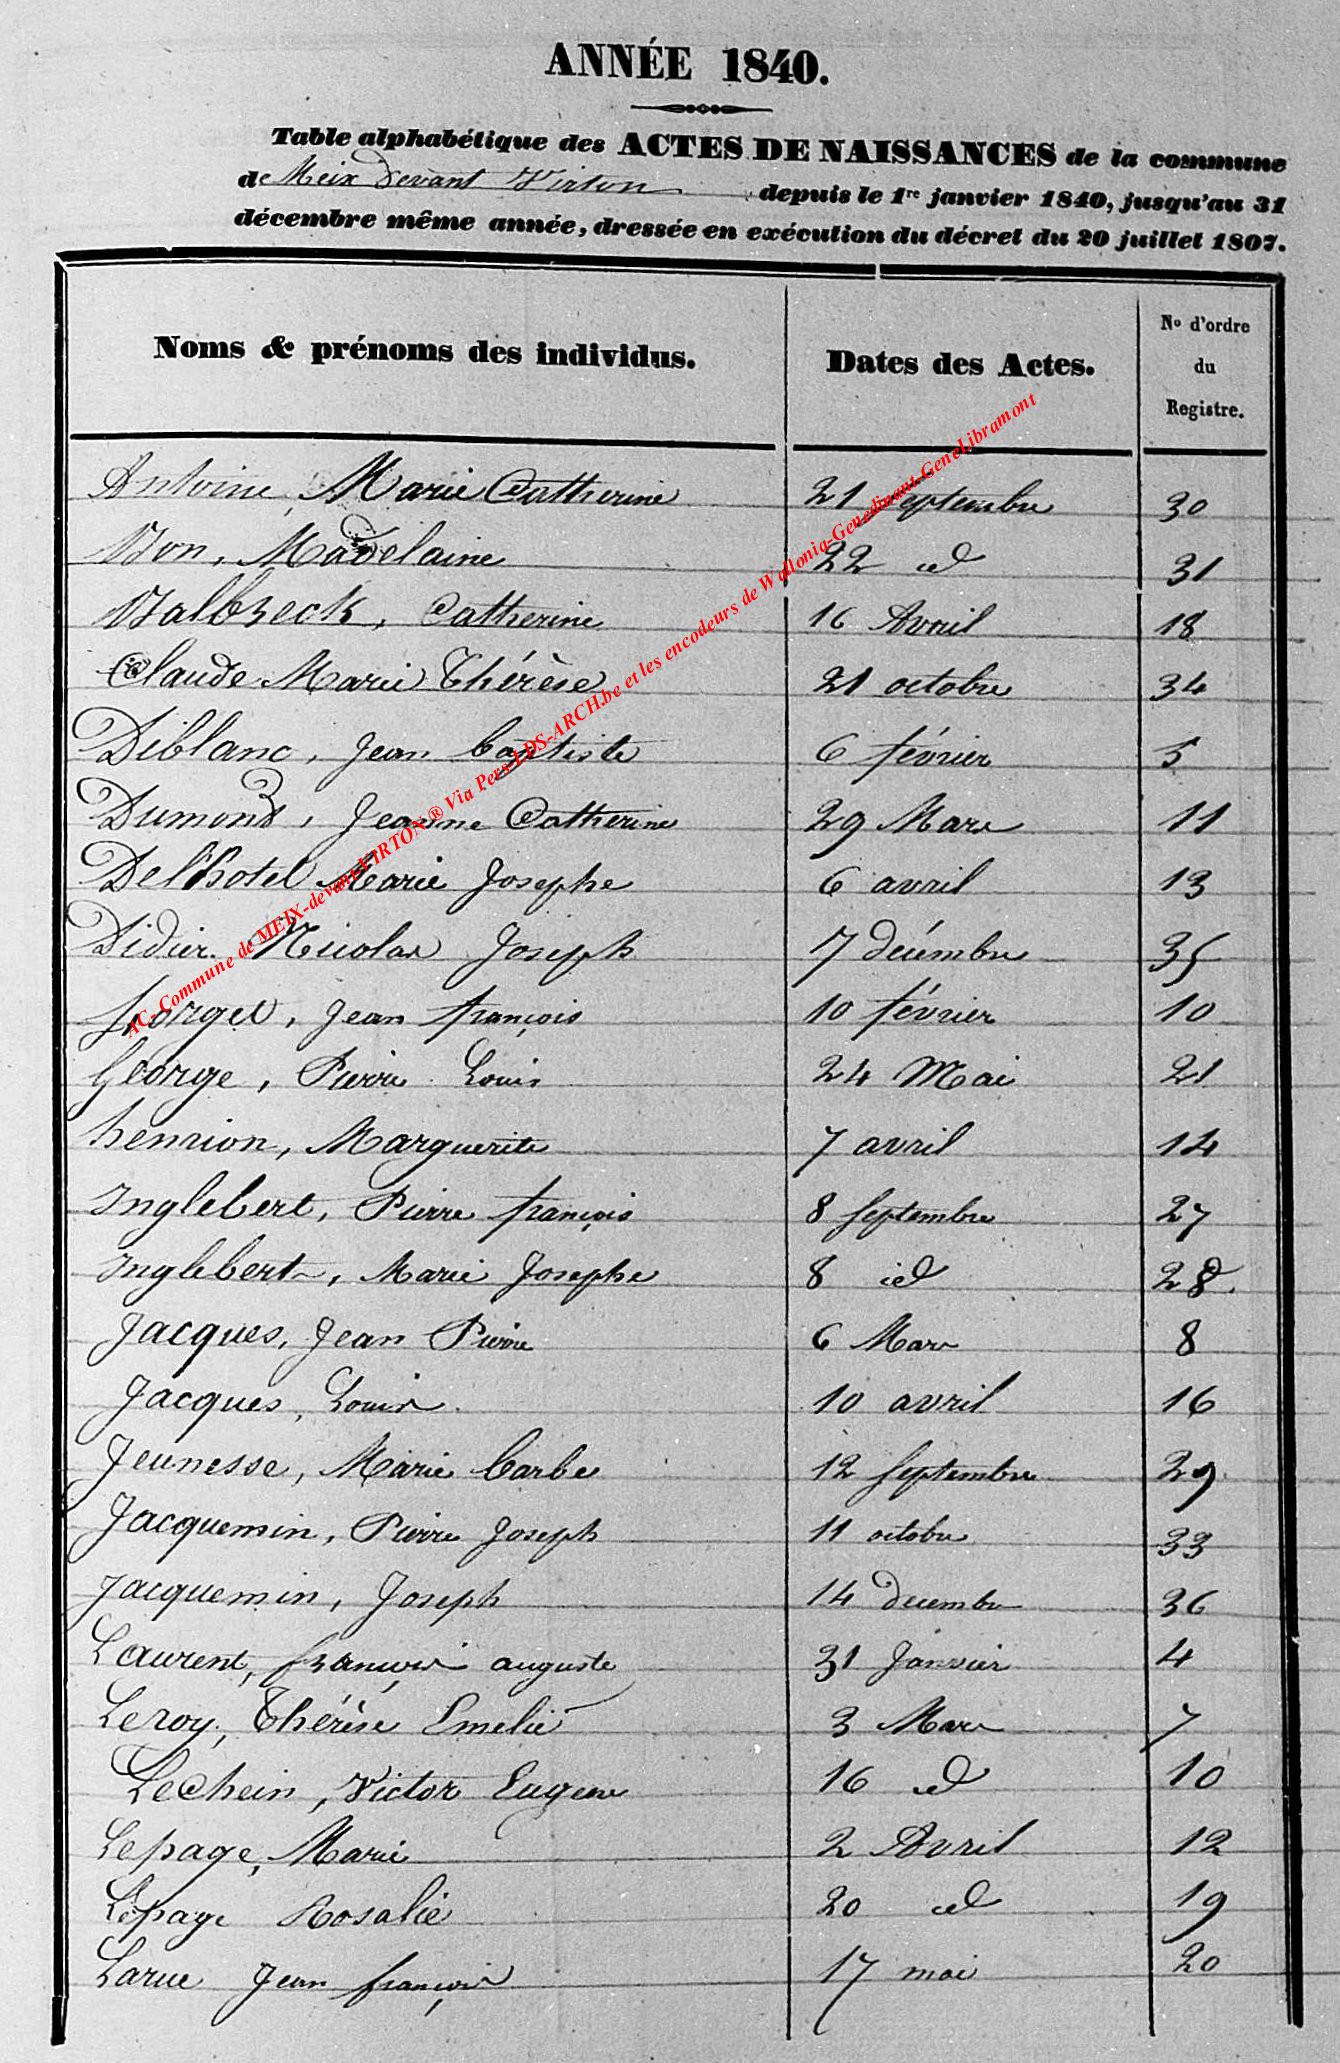 ANNÉE 1840.
Table alphabétique des ACTES DE NAISSANCES de la commune
de Meix devant Virton depuis le 1re janvier 1840, jusqu'au 31
décembre même année, dressée en exécution du décret du 20 juillet 1807.
Noms & prénoms des individus. Dates des Actes. No d'ordre du Registre.
Antoine, Marie Catherine 21 Septembre 30
Bon, Madelaine 22 id 31
Balbzeck, Catherine 16 Avril 18
Claude Marie Thérèse 21 octobre 34
Diblanc, Jean baptiste 6 février 5
Dumond, Jeanne Catherine 29 Mars 11
Del'hotel Marie Josephe 6 avril 13
Didier Nicolas Joseph 7 décembre 35
forget, Jean françois 10 février 10
George, Pierre Louis 24 Mai 21
henrion, Marguerite 7 avril 14
Inglebert, Pierre françois 8 Septembre 27
Inglebert, Marie Josephe 8 id 28.
Jacques, Jean Pierre 6 Mars 8
Jacques, Louis 10 avril 16
Jeunesse, Marie barbe 12 Septembre 29
Jacquemin, Pierre Joseph 11 octobre 33
Jacquemin, Joseph 14 decembre 36
Laurent, françois auguste 31 Janvier 4
Leroy, Thérèse Emelie 3 Mars 7
Lechein, Victor Eugene 16 id 10
Lepage, Marie 2 Avril 12
Lepage Rosalie 20 id 19
Larue Jean françois 17 mai 20
AC-Commune de MEIX-devant-VIRTON ® Via Pers-LDS-ARCH.be et les encodeurs de Wallonia-Genedinant-GeneLibramont